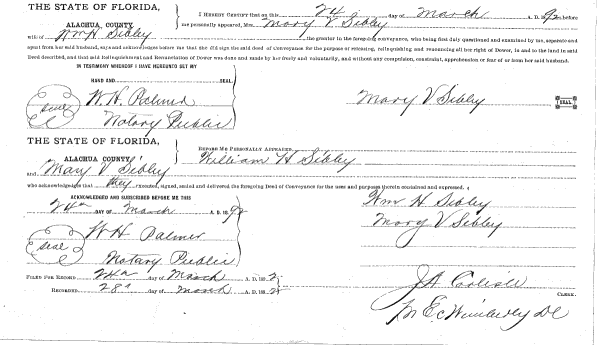 THE STATE OF FLORIDA,
ALACHUA COUNTY.
I HEREBY CERTIFY that on this 24 day of March A. D. 1892 before
me personally appeared, Mrs. Mary V. Sibley
wife of Wm H. Sibley the grantor in the foregoing conveyance, who being first duly questioned and examined by me, separate and
apart from her said husband, says and acknowledges before me that she did sign the said deed of conveyance for the purpose of releasing, relinquishing and renouncing all her right of Dower, in and to the land in said
Deed described, and that said Relinquishment and Renunciation of Dower was done and made by her freely and voluntarily, and without any compulsion, constraint, apprehension or fear of or from her said husband.
IN TESTIMONY WHEREOF I HAVE HEREUNTO SET MY
HAND AND SEAL
Seal W. H. Palmer
Notary Public
Mary V Sibley SEAL
THE STATE OF FLORIDA,
ALACHUA COUNTY
BEFORE ME PERSONALLY APPEARED
William H Sibley
and Mary V Sibley
who acknowledges that they executed, signed, sealed and delivered the foregoing Deed of Conveyance for the uses and purposes therein contained and expressed.
ACKNOWLEDGED AND SUBSCRIBED BEFORE ME THIS
24th DAY OF March A. D. 1892
Wm H Sibley
Mary V Sibley
Seal W H Palmer
Notary Public
FILED FOR RECORD 24th day of March A. D. 1892
RECORDED 28th day of March A. D. 1892
J A Carlisle CLERK.
Pr E C Wimberly DC